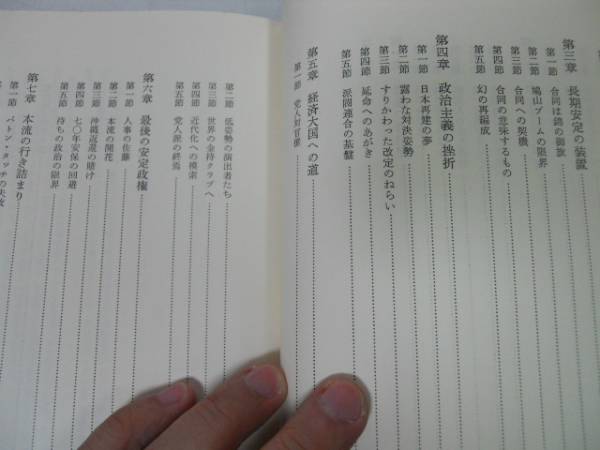 第三章 長期安定の装置
第一節 合同は錦の御旗
第二節 鳩山ブームの限界
第三節 合同への契機
第四節 合同の意味するもの
第五節 幻の再編成
第四章 政治主義の挫折
第一節 日本再建の夢
第二節 露わな対決姿勢
第三節 すりかわった改定のねらい
第四節 延命へのあがき
第五節 派閥連合の基盤
第五章 経済大国への道
第一節 党人対官僚
第二節 低姿勢の演出者たち
第三節 世界の金持クラブへ
第四節 近代化への模索
第五節 党人派の終焉
第六章 最後の安定政権
第一節 人事の佐藤
第二節 本流の開花
第三節 沖縄返還の賭け
第四節 七〇年安保の回避
第五節 待ちの政治の限界
第七章 本流の行き詰まり
第一節 バトン・タッチの失敗